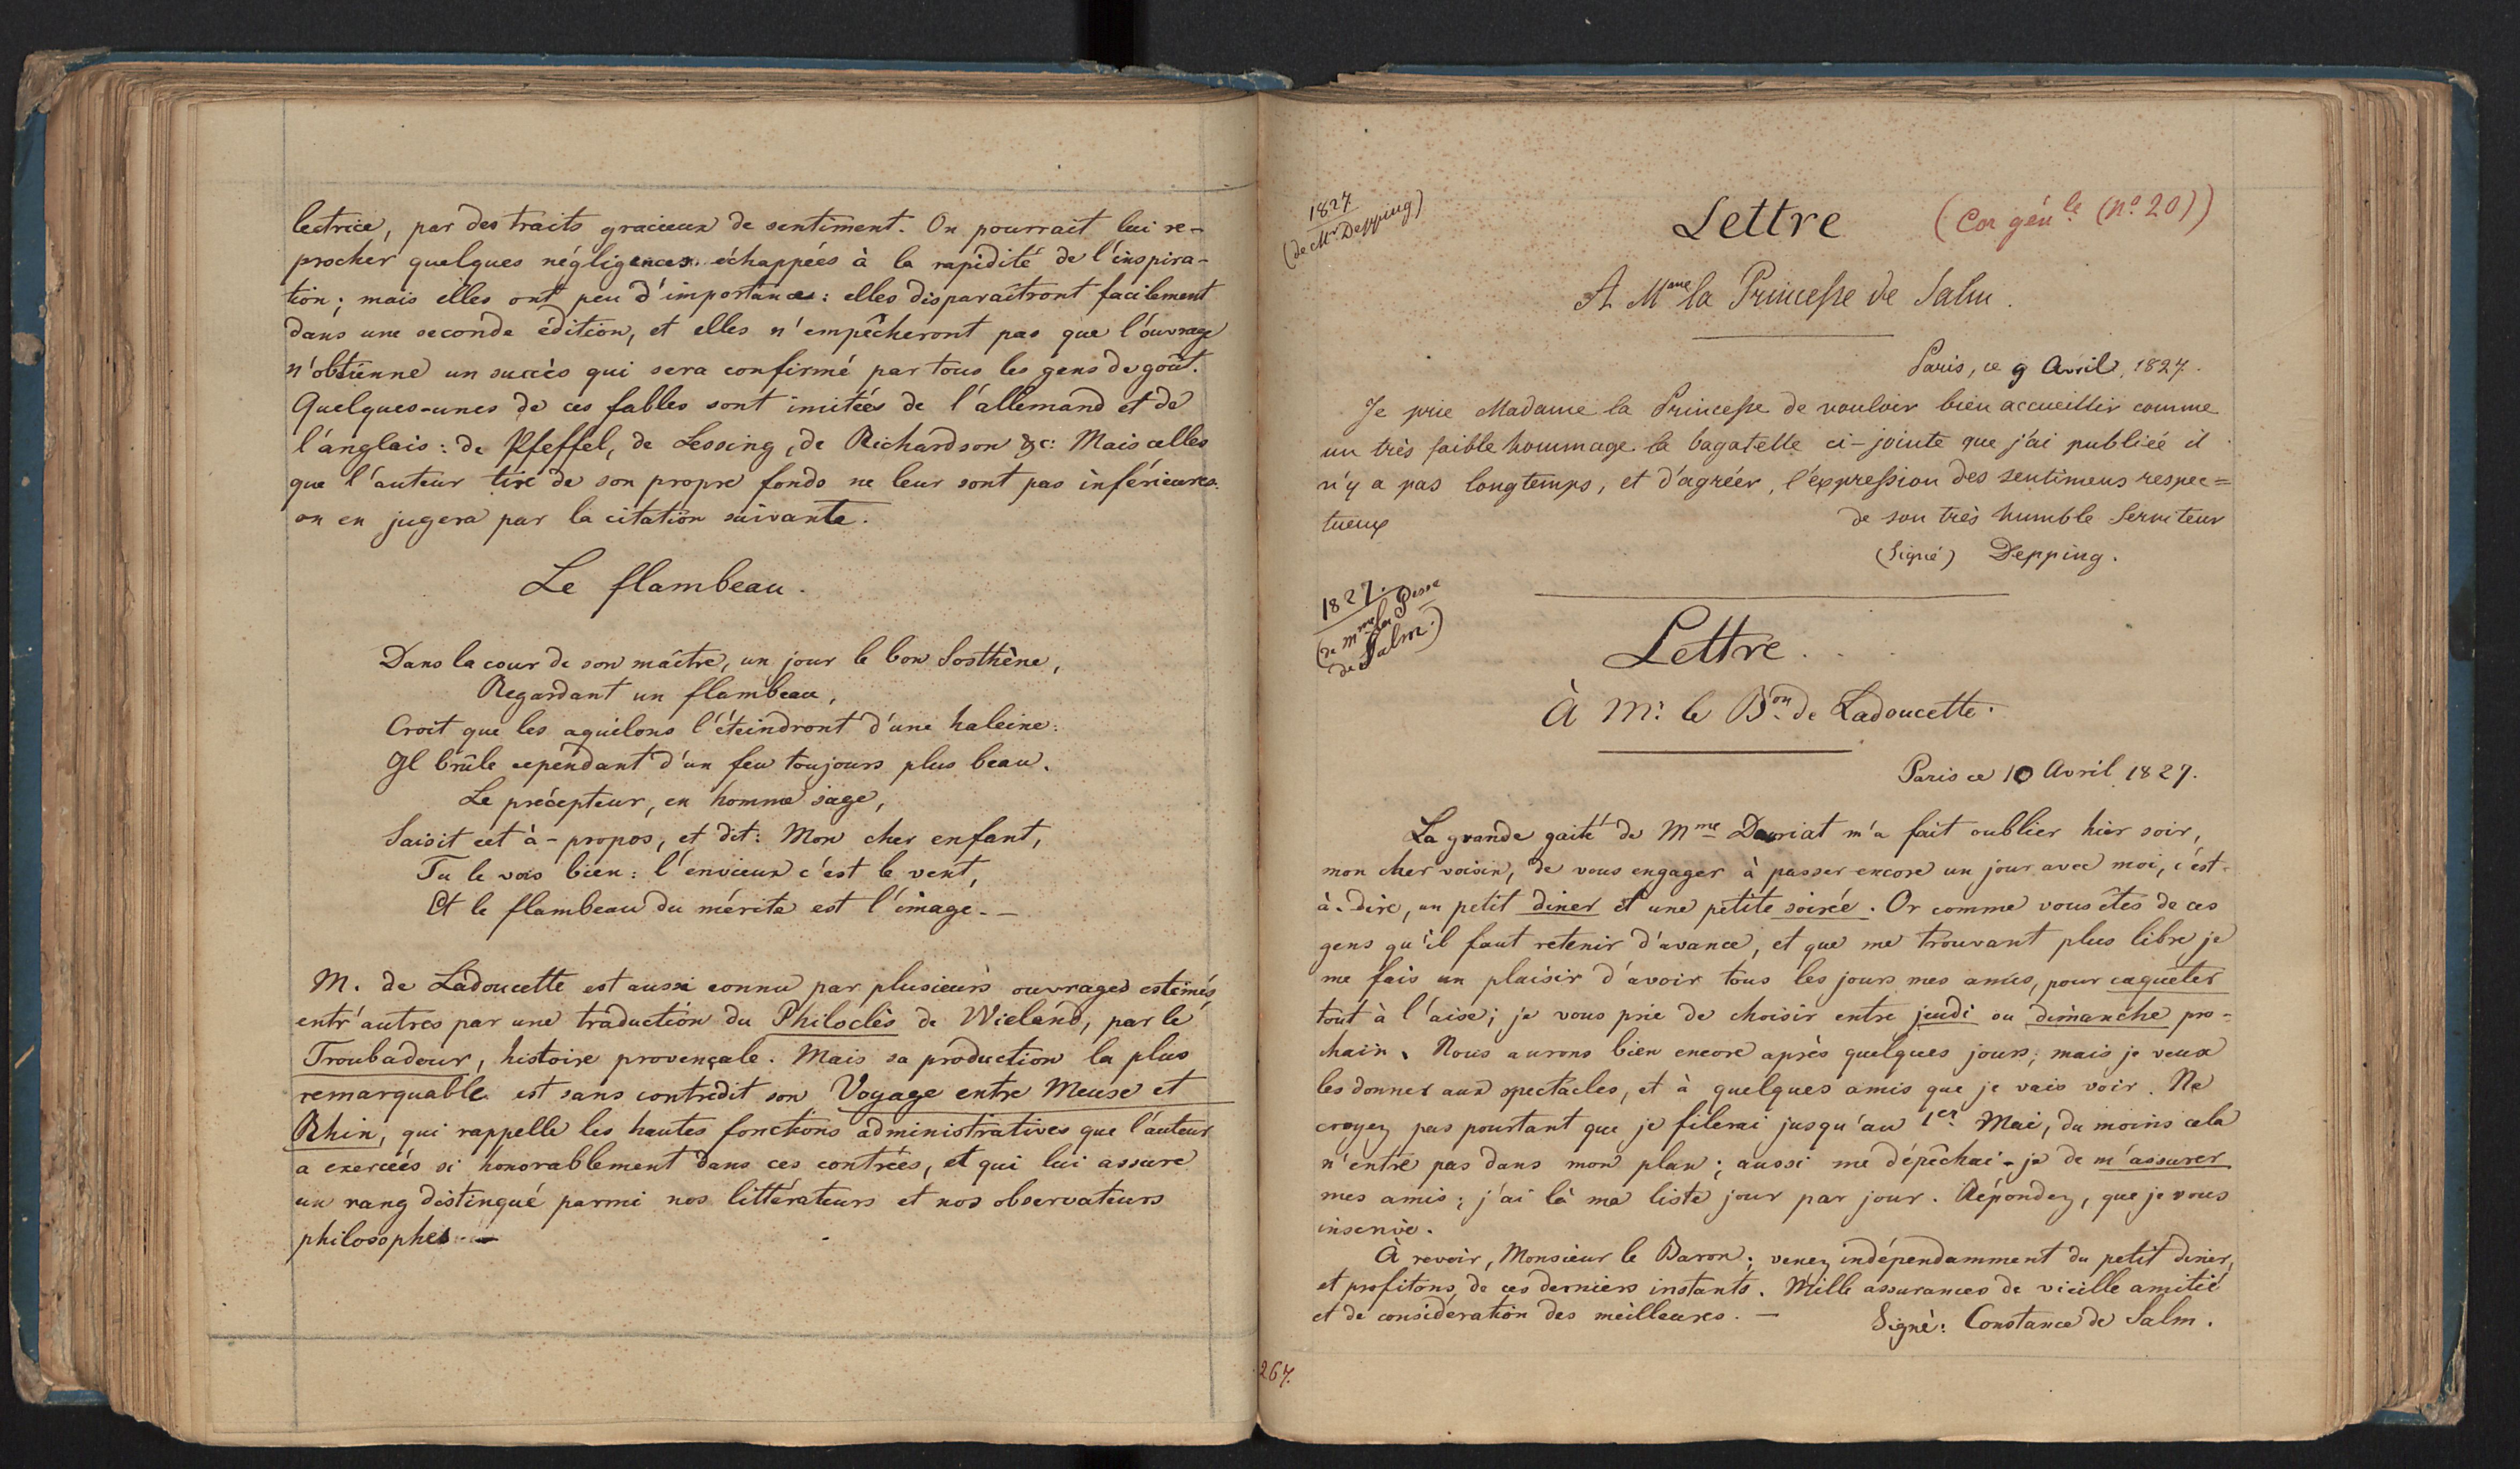 lectrice, par des traits gracieux de sentiment. On pourrait lui re-
procher quelques négligences échappées à la rapidité de l'inspira-
tion; mais elles ont peu d'importance: elles disparaîtront facilement
dans une seconde édition, et elles n'empêcheront pas que l'ouvrage
n'obtienne un succès qui sera confirmé par tous les gens de goût.
Quelques-unes de ces fables sont imitées de l'allemand et de
l'anglais: de Pfeffel, de Lessing, de Richardson &c: Mais celles
que l'auteur tire de son propre fonds ne leur sont pas inférieures.
on en jugera par la citation suivante.
Le flambeau.
Dans la cour de son maître, un jour le bon Sosthène,
Regardant un flambeau,
Croit que les aquilons l'éteindront d'une haleine:
Il brûle cependant d'un feu toujours plus beau.
Le précepteur, en homme sage,
Saisit cet à-propos, et dit: Mon cher enfant,
Tu le vois bien: l'envieux c'est le vent,
Et le flambeau du mérite est l'image. —
M. de Ladoucette est aussi connu par plusieurs ouvrages estimés,
entr'autres par une traduction du Philoclès de Wieland, par le
Troubadour, histoire provençale. Mais sa production la plus
remarquable est sans contredit son Voyage entre Meuse et
Rhin, qui rappelle les hautes fonctions administratives que l'auteur
a exercées si honorablement dans ces contrées, et qui lui assure
un rang distingué parmi nos littérateurs et nos observateurs
philosophes. —
1827
(de Mr. Depping)
Lettre (Cor génle. (no. 20))
A Mme la Princesse de Salm.
Paris, ce 9 Avril, 1827.
Je prie Madame la Princesse de vouloir bien accueillir comme
un très faible hommage la bagatelle ci-jointe que j'ai publiée il
n'y a pas longtemps, et d'agréer, l'expression des sentimens respec=
tueux de son très humble Serviteur
(Signé) Depping.
1827.
(de Mme la Pesse
de Salm.)
Lettre.
À Mr. le Bon. de Ladoucette.
Paris ce 10 Avril 1827.
La grande gaité de Mme Dauriat m'a fait oublier hier soir,
mon cher voisin, de vous engager à passer encore un jour avec moi, c'est-
à-dire, un petit diner et une petite soirée. Or comme vous êtes de ces
gens qu'il faut retenir d'avance, et que me trouvant plus libre je
me fais un plaisir d'avoir tous les jours mes amis, pour caqueter
tout à l'aise; je vous prie de choisir entre jeudi ou dimanche pro-
chain. Nous aurons bien encore après quelques jours; mais je veux
les donner aux spectacles, et à quelques amis que je vais voir. Ne
croyez pas pourtant que je filerai jusqu'au 1er. Mai, du moins cela
n'entre pas dans mon plan; aussi me dépêchai-je de m'assurer
mes amis; j'ai là ma liste jour par jour. Répondez, que je vous
inscrive.
À revoir, Monsieur le Baron; venez indépendamment du petit diner,
et profitons de ces derniers instants. Mille assurances de vieille amitié
et de considération des meilleures. —
Signé: Constance de Salm.
267.